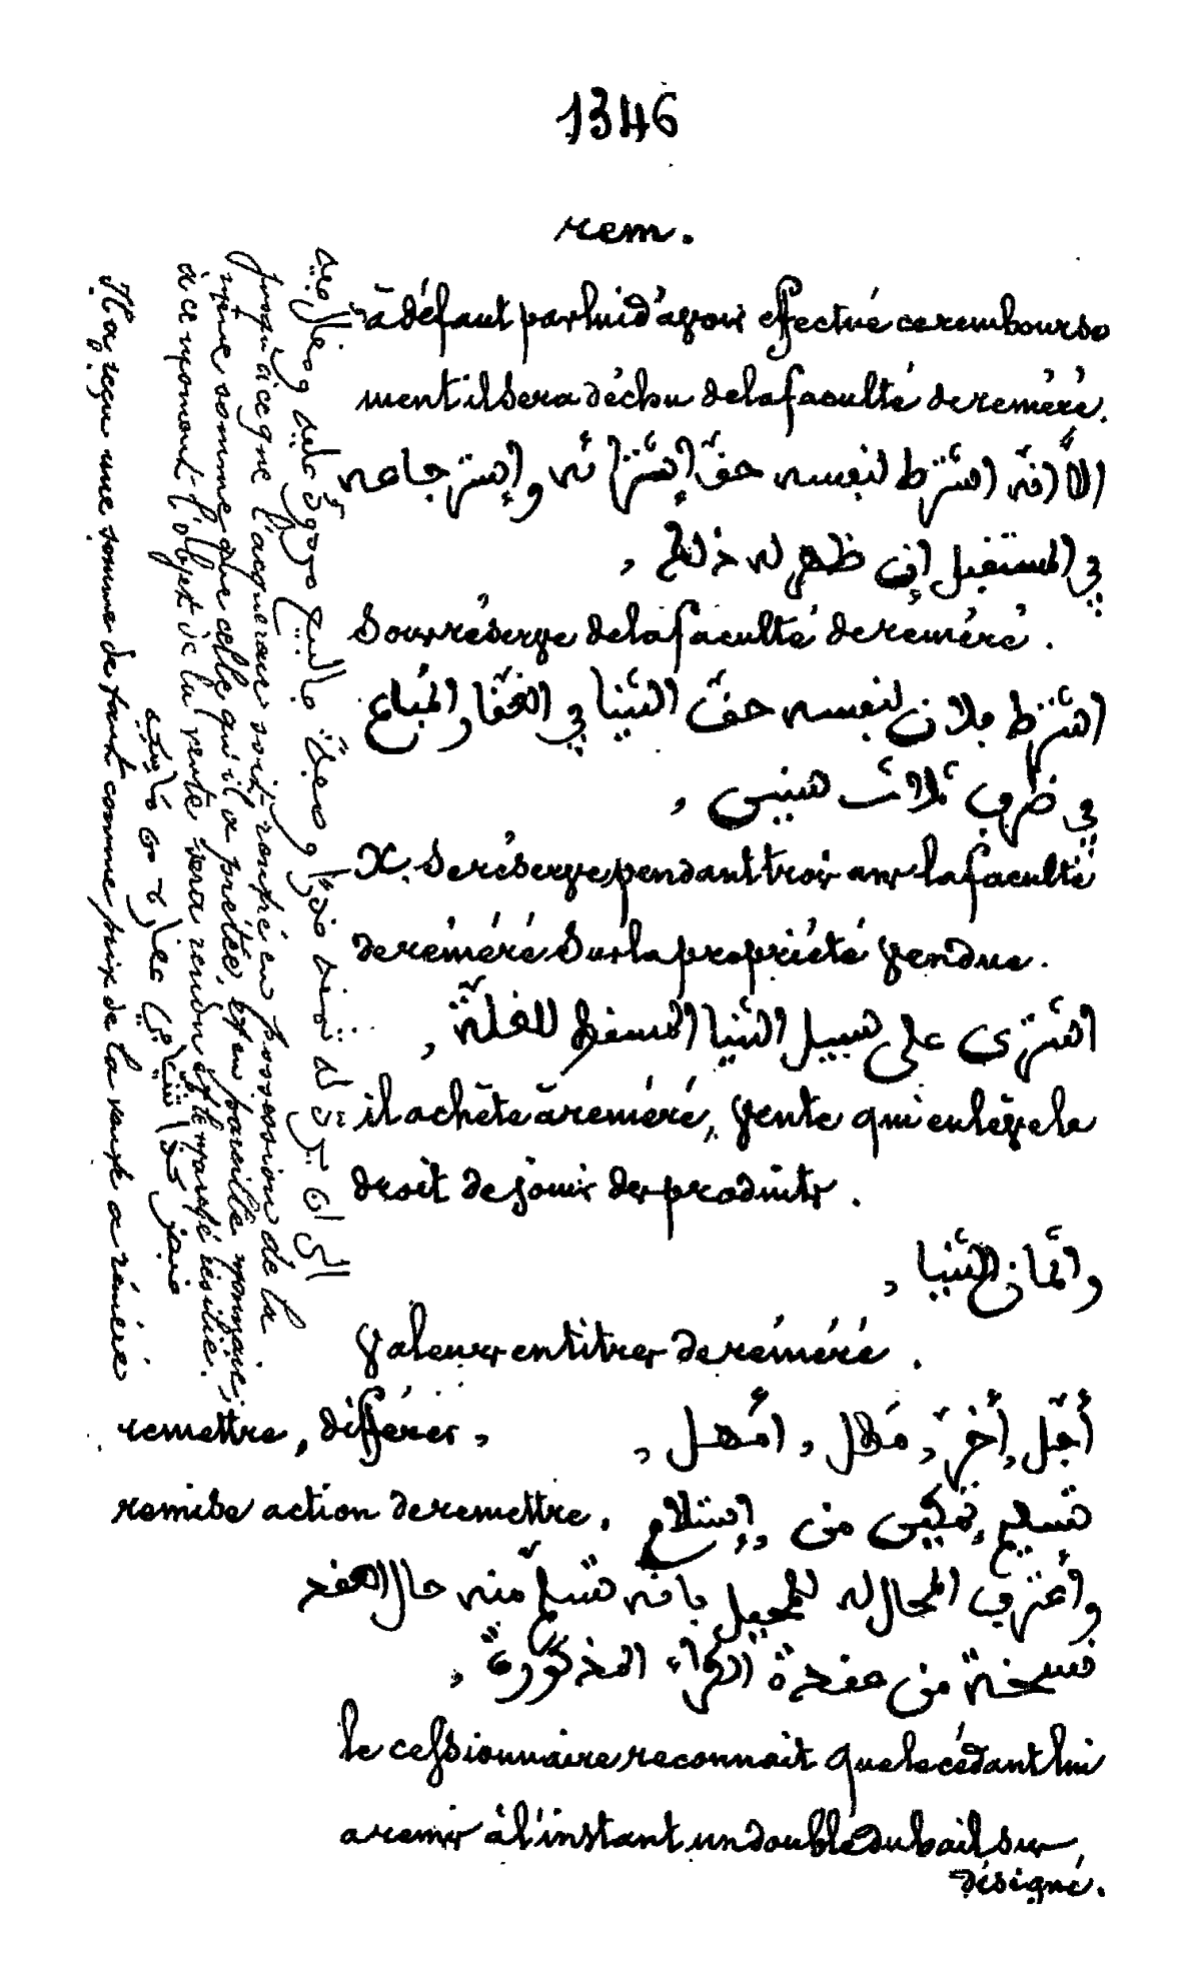 1346
rem.
à défaut par lui d'avoir effectué ce rembourse
ment il sera déchu de la faculté de réméré.
إلاّ أنّه اشترط لنفسه حقّ إشترائه وإسترجاعه
في المستقبل إن ظهر له ذلك ,
Sous réserve de la faculté de réméré.
اشترط فلان لنفسه حقّ الثنيا في الحقّ المُباع
في ظرف ثلاث سنين ,
X. Se réserve pendant trois ans la faculté
de réméré Sur la propriété vendue.
اشترى على سبيل الثنيا المسقط للغلّة ,
il achète à réméré, vente qui enlève le
droit de jouir des produits.
واثمان الثنيا ,
Valeurs en titres de réméré.
remettre, différer, أجّل, أخّر, مطل, امهل,
remise action de remettre. تسليم, تمكين من, إستلام
وأعترف المحال له للمحيل بانه تسلّم منه حال العقد
نسخة من عقدة الكراء المذكورة ,
le cessionnaire reconnait que le cédant lui
a remis à l'instant un double du bail sus
désigné.
jusqu'à ce que l'acquéreur soit rentré en possession de la
même somme que celle qu'il a prêtée, et en pareille monnaie;
à ce moment l'objet de la vente sera rendu et le marché résilié.
Il a reçu une somme de tant comme prix de la vente à réméré